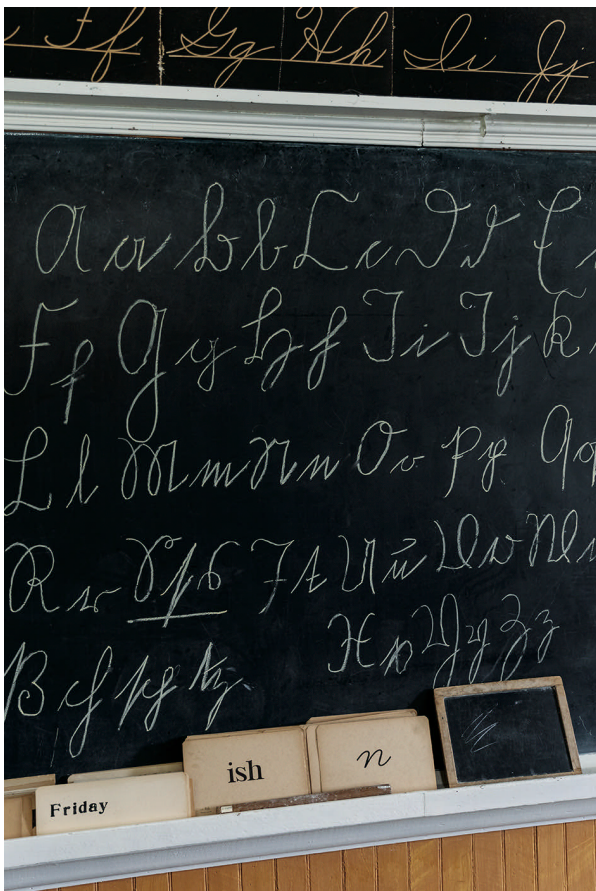 Ff Gg Hh Ii Jj
A a B b C c D d E
F f G g H h I i J j K
L l M m N n O o P p Q q
R r S ſ s T t U u V v W
X x Y y Z z
Friday
ish
n